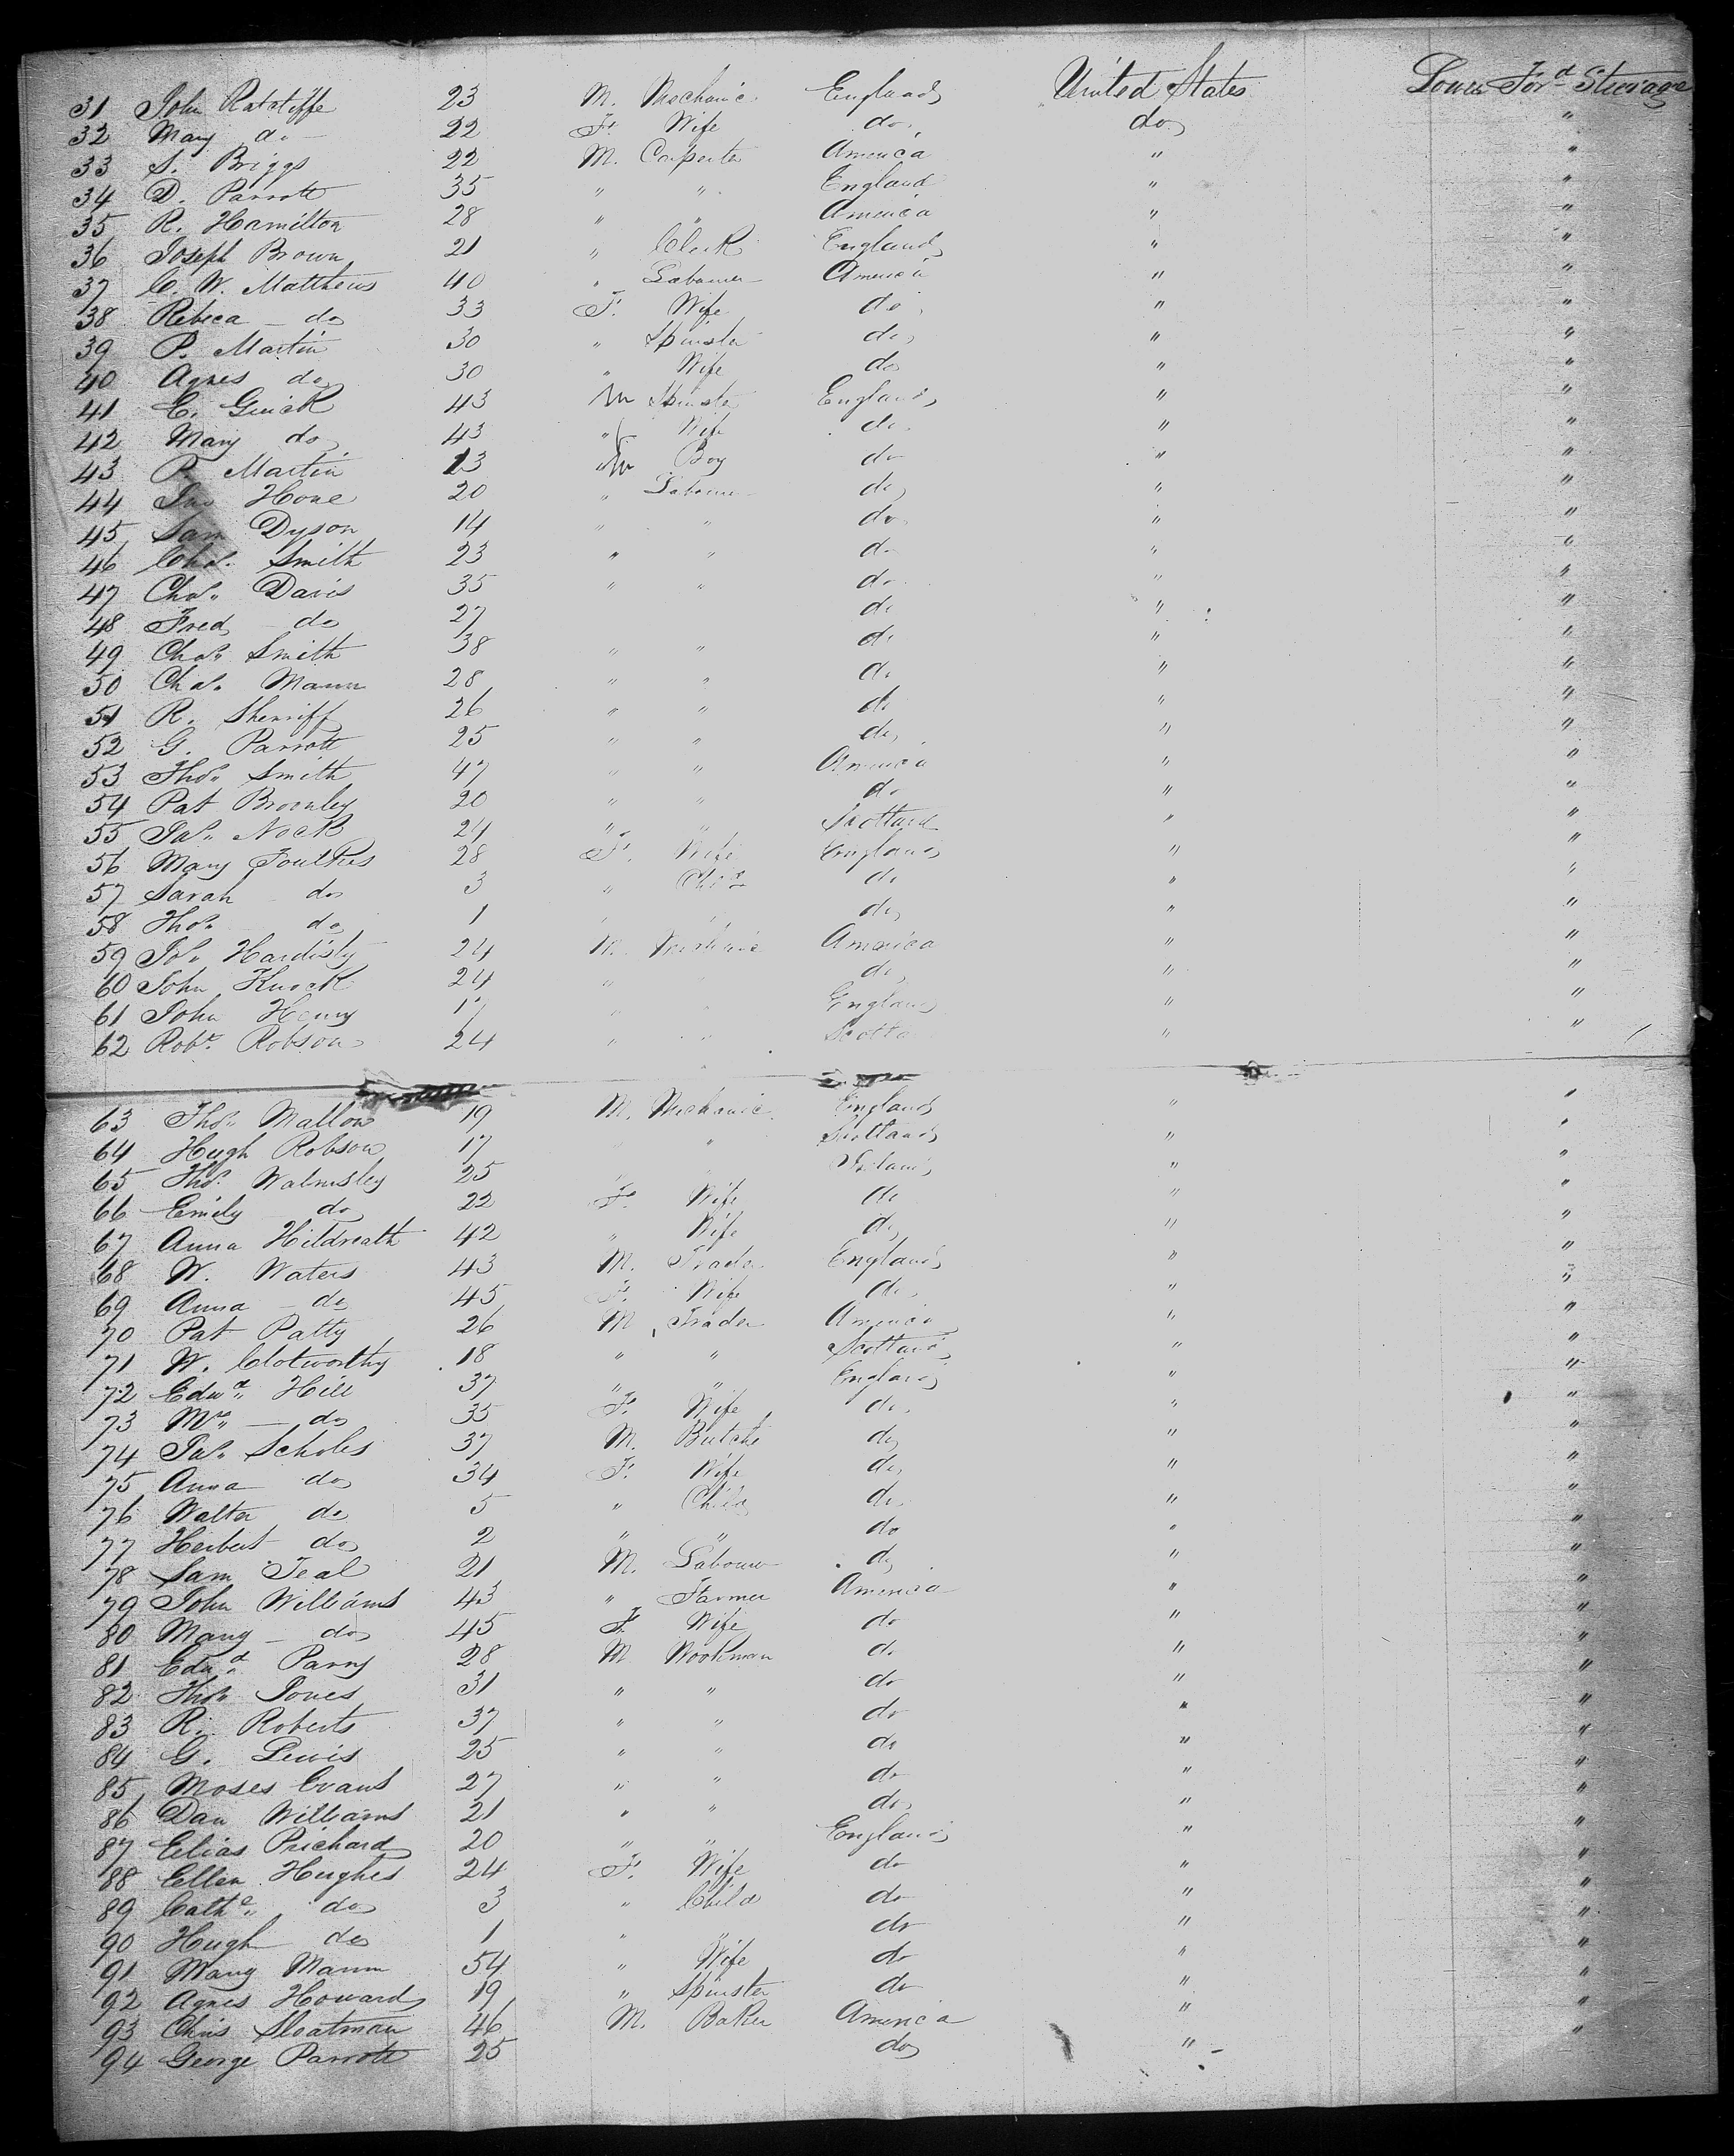 31 John Ratcliffe 23 M. Mechanic England United States Lower For^d Steerage
32 Mary do 22 F. Wife do do "
33 S. Briggs 22 M. Carpenter America " "
34 D. Parrott 35 " " England " "
35 R. Hamilton 28 " " America " "
36 Joseph Brown 21 " Clerk England " "
37 C. W. Matthews 40 " Labourer America " "
38 Rebeca do 33 F. Wife do " "
39 P. Martin 30 " Spinster do " "
40 Agnes do 30 " Wife do " "
41 E. Guick 43 M Spinster England " "
42 Mary do 43 " f Wife do " "
43 P. Martin 13 " M Boy do " "
44 Jno Hone 20 " Labourer do " "
45 Sam Dyson 14 " " do " "
46 Chas. Smith 23 " " do " "
47 Chas. Davis 35 " " do " "
48 Fred do 27 do " "
49 Chas. Smith 38 " " do " "
50 Chas. Mann 28 " " do " "
51 R. Sherriff 26 " " do " "
52 G. Parrott 25 " " do " "
53 Thos. Smith 47 " " America " "
54 Pat Bromley 20 " " do " "
55 Jas. Nock 24 " " Scotland " "
56 Mary Foulkes 28 F. Wife England " "
57 Sarah do 3 " Child do " "
58 Thos. do 1 " " do " "
59 Jos. Hardisty 24 M. Mechanic America " "
60 John Knock 24 " " do " "
61 John Henry 17 " " England " "
62 Robt. Robson 24 " " Scotla " "
63 Thos. Mallow 19 M. Mechanic England " "
64 Hugh Robson 17 " " Scotland " "
65 Thos. Walmsley 25 " " Ireland " "
66 Emily do 22 F. Wife do " "
67 Anna Hildreath 42 " Wife do " "
68 W. Waters 43 M. Trader England " "
69 Anna do 45 F. Wife do " "
70 Pat Patty 26 M. Trader America " "
71 W. Clotworthy 18 " " Scotland " "
72 Edwd. Hill 37 " " England " "
73 Mrs. do 35 F. Wife do " "
74 Jas. Scholes 37 M. Butcher do " "
75 Anna do 34 F. Wife do " "
76 Walter do 5 " Child do " "
77 Herbert do 2 " " do " "
78 Sam Teal 21 M. Labourer do " "
79 John Williams 43 " Farmer America " "
80 Mary do 45 F. Wife do " "
81 Edwd. Parry 28 M Workman do " "
82 Thos. Jones 31 " " do " "
83 R. Roberts 37 " " do " "
84 G. Lewis 25 " " do " "
85 Moses Evans 27 " " do " "
86 Dan Williams 21 " " do " "
87 Elias Prichard 20 " " England " "
88 Ellen Hughes 24 F. Wife do " "
89 Cathe. do 3 " Child do " "
90 Hugh do 1 " " do " "
91 Mary Mann 54 " Wife do " "
92 Agnes Howard 19 " Spinster do " "
93 Chris Sloatman 46 M. Baker America " "
94 George Parrott 25 do " "